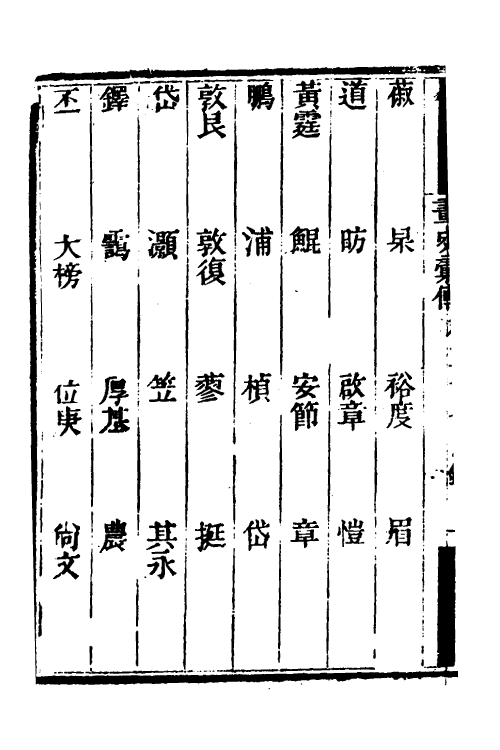 菽　杲　裕度　眉
道　昉　啟章　愷
黃霆　鯤　安節　章
鵬　浦　楨　岱
敦艮　敦復　蓼　挺
岱　灝　笠　其永
鐸　靄　厚基　農
丕　大榜　位庚　尙文
畫史彙傳